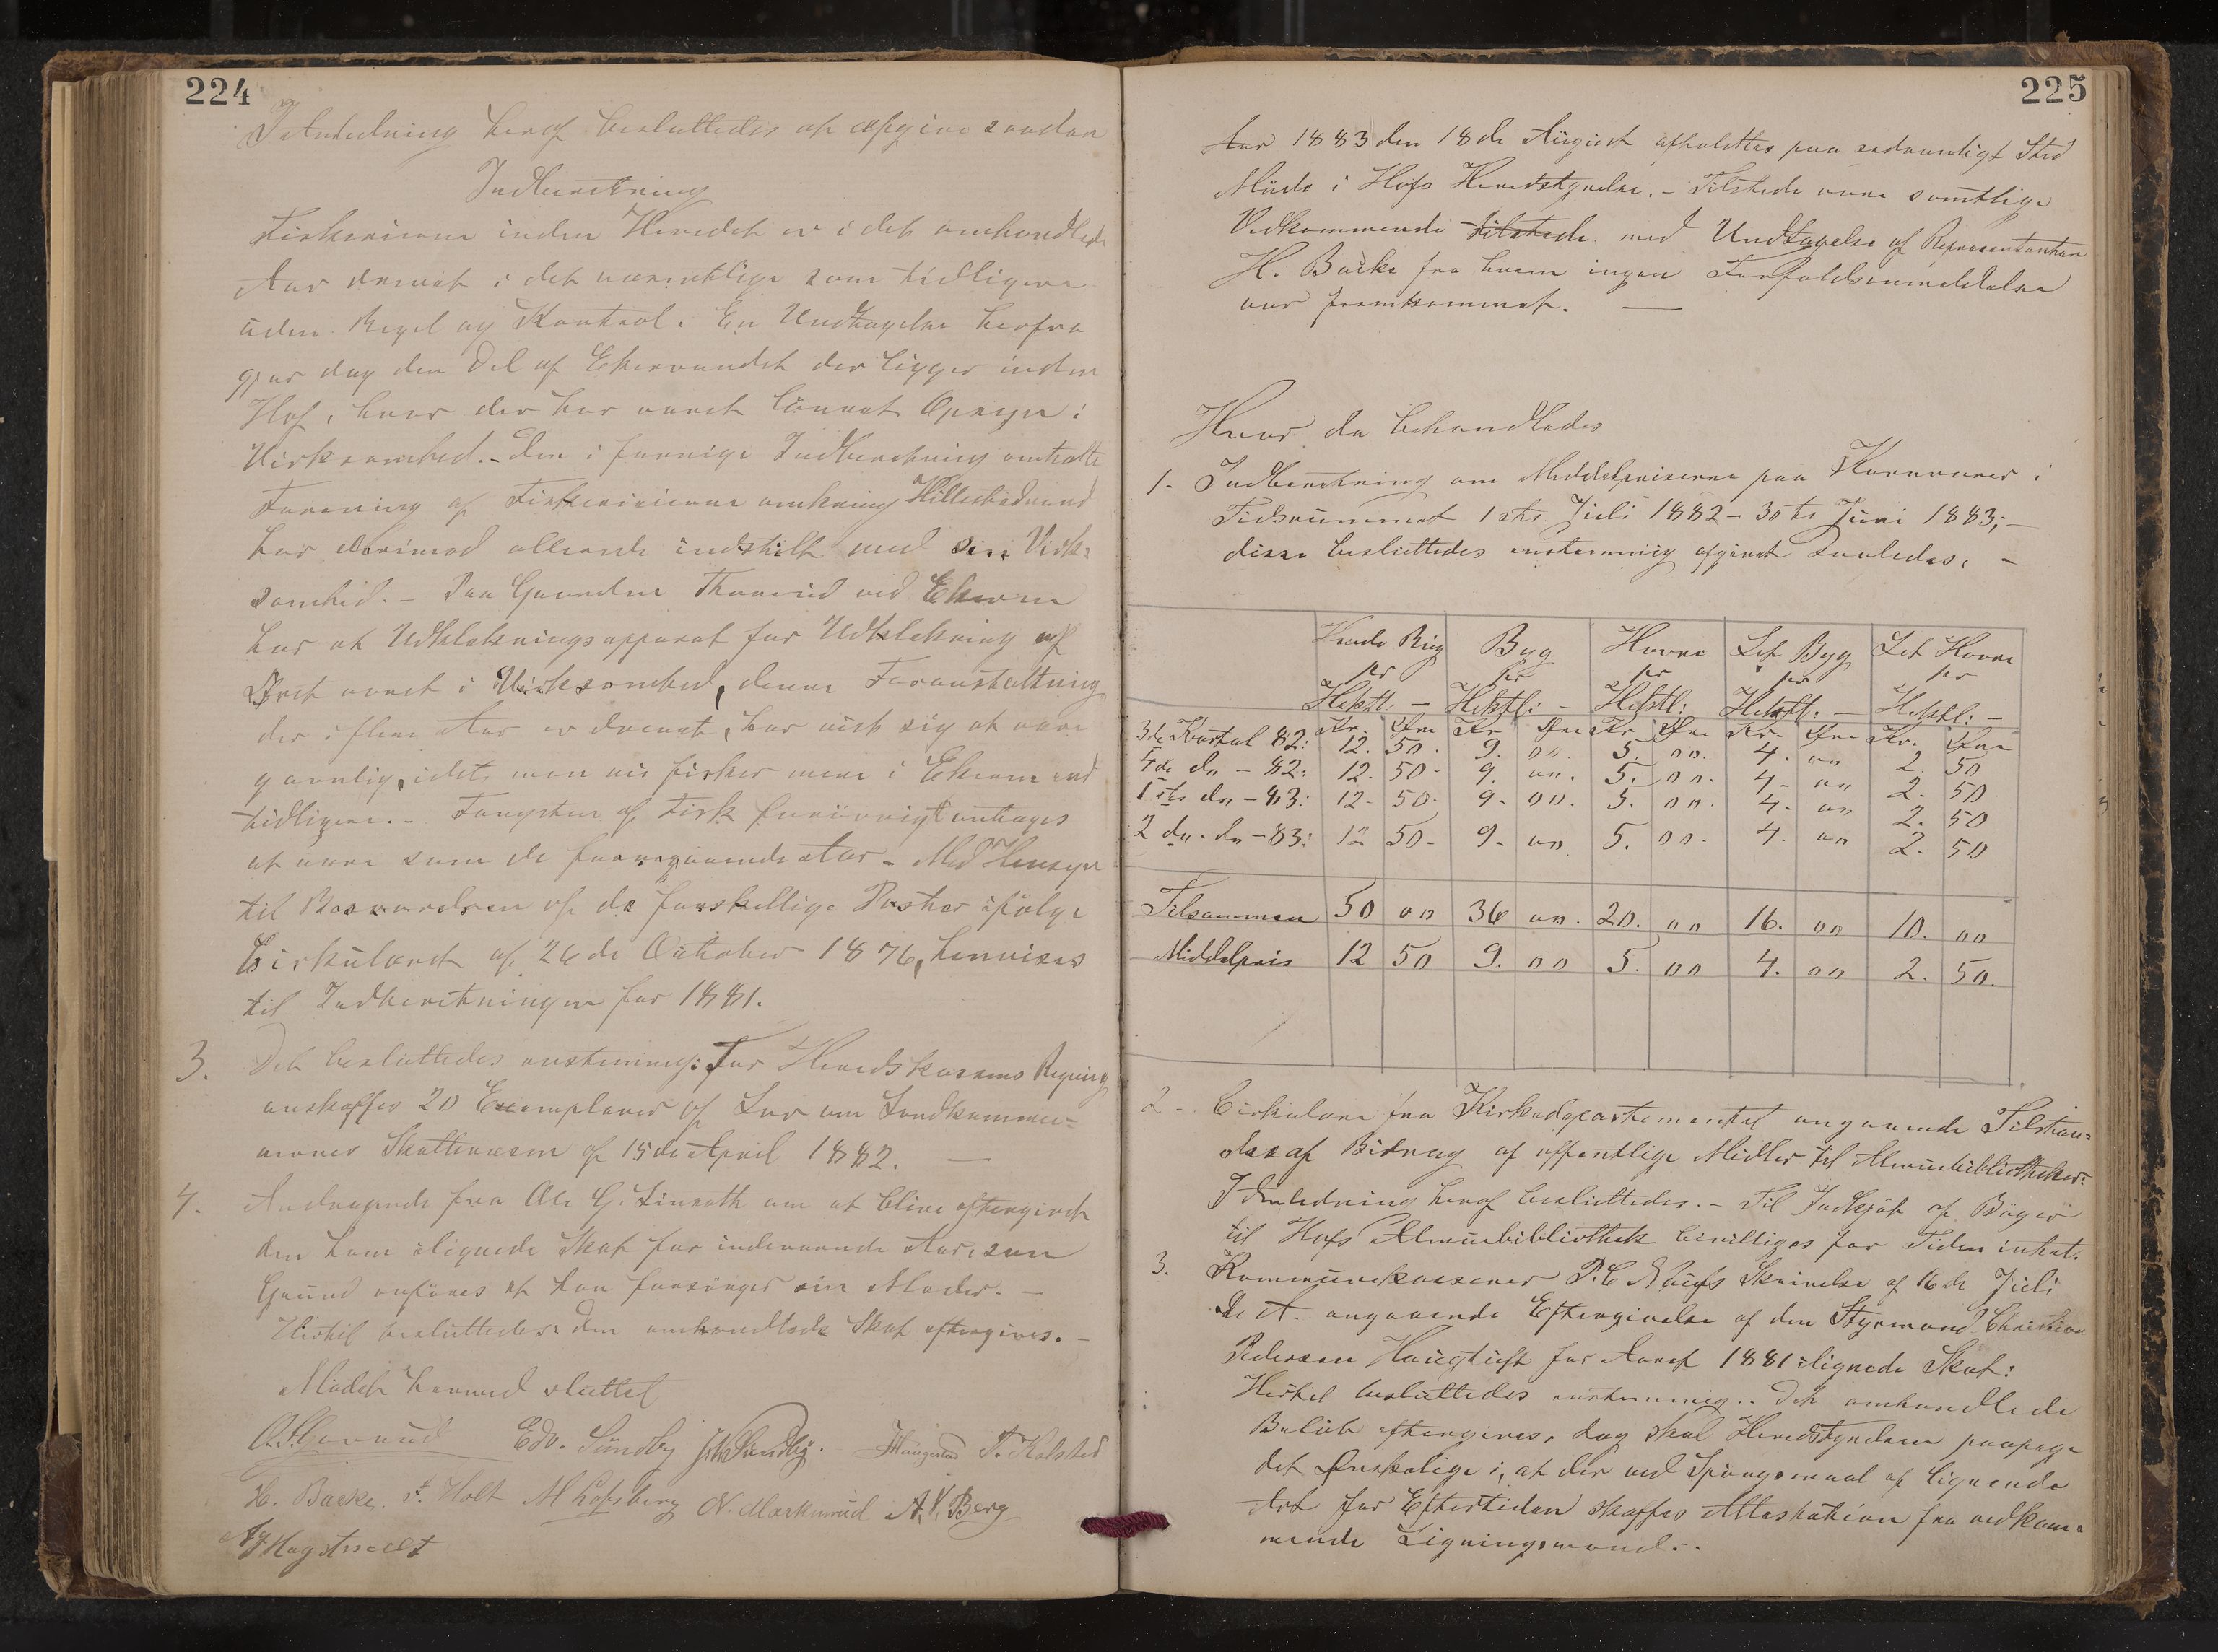 224
I Anledning heraf besluttedes at afgive saadan
Indberetning
Fiskerierne inden Herredet er i det omhandlede
Aar drevet i det væsentlige som tidligere
uden Regel og Kontrol. En Undtagelse herfra
gjør dog den Del af Ekervandet der ligger inden
Hof, hvor der har været lønnet Opsyn i
Virksomhed. – Den i forrige Indberetning omtalte
Forening af Fiskerieierne omkring Hillestadvand
har derimod allerede indstillt med sin Virk=
somhed. – Paa Gaarden Thorrud ved Ekeren
har et Udklækningsapparat for Udklækning af
Ørret været i Virksomhed, denne Foranstaltning
der i flere Aar er drevet, har vist sig at være
gavnlig, idet man nu fisker mere i Ekeren end
tidligere. – Fangsten af Fisk forøvrigt antages
at være som de foregaaende Aar – Med Hensyn
til Besvarelsen af de forskellige Poster ifølge
Cirkulæret af 26de October 1876, henvises
til Indberetningen for 1881.
3. Det besluttedes enstemmig: For Herredskassens Regning
anskaffes 20 Exemplarer af Lov om Landkommu=
nernes Skattevæsen af 15de April 1882. —
4. Andragende fra Ole G. Linnoth om at blive eftergivet
den ham ilignede Skat for indeværende Aar, som
Grund anføres at han forsørger sin Moder. –
Hertil besluttedes: den omhandlede Skat eftergives. –
Mødet hermed sluttet
Edv. Sundby J. Sundby. T. Kolsted
H. Backe. Holt M Løfsberg N. Markerud A. K. Berg
225
Aar 1883 den 18de August afholdtes paa sædvanligt Sted
Møde i Hofs Herredstyrelse. – Tilstede vare samtlige
Vedkommende tilstede med Undtagelse af Repræsentanten
H. Backe fra hvem ingen Forfaldsanmeldelse
var fremkommet. —
Hvor da behandledes
1. Indberetning om Middelpriserne paa Kornvarer i
Tidsrummet 1ste Juli 1882 – 30te Juni 1883; –
disse besluttedes enstemmig afgivet saaledes. –
Byg Havre Let Byg Let Havre
pr pr pr pr pr
Hektl: – Hektl: – Hektl: Hektl: – Hektl: –
Kr. Øre Kr Øre Kr. Øre Kr. Øre Kr. Øre
3de Kvartal 82: 12. 50. 9. 00. 5. 00. 4. 00 2. 50
4de do – 82: 12. 50 – 9. 00. 5. 00. 4. 00 2. 50
1ste do – 83: 12. 50. 9. 00. 5. 00. 4. 00 2. 50
2do. do – 83: 12 50. 9. 00 5. 00. 4. 00 2. 50
Tilsammen 50 00 36 00. 20. 00 16. 00 10. 00
Middelpris 12 50 9. 00 5. 00 4. 00 2. 50.
2 – Cirkulære fra Kirkedepartementet angaaende Tilstaa=
else af Bidrag af offentlige Midler til Almuebibliotheker:
I Anledning heraf besluttedes. – Til Indkjøb af Bøger
til Hofs Almuebibliothek bevilliges for Tiden intet.
3. Kommunekasserer P. C. Skrivelse af 16de Juli
d. A. angaaende Eftergivelse af den Styrmand Christian
Pedersen Haugtuft for Aaret 1881 ilignede Skat:
Hertil besluttedes enstemmig. Det omhandlede
Beløb eftergives, dog skal Herredstyrelsen paapege
det Ønskelige i, at der ved Spørgsmaal af lignende
Art for Eftertiden skaffes Attestation fra vedkom=
mende Ligningsmand. –